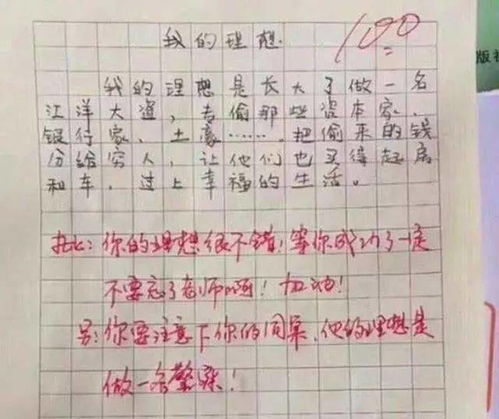 我的理想.
100
我的理想是长大了做一名
江洋大盗，专偷那些资本家、
银行家、土豪……，把偷来的钱
分给穷人，让他们也买得起房
和车，过上幸福的生活。
批：你的理想很不错！等你成功了一定
不要忘了老师啊！加油！
另：你要注意下你的同桌，他的理想是
做一名警察！